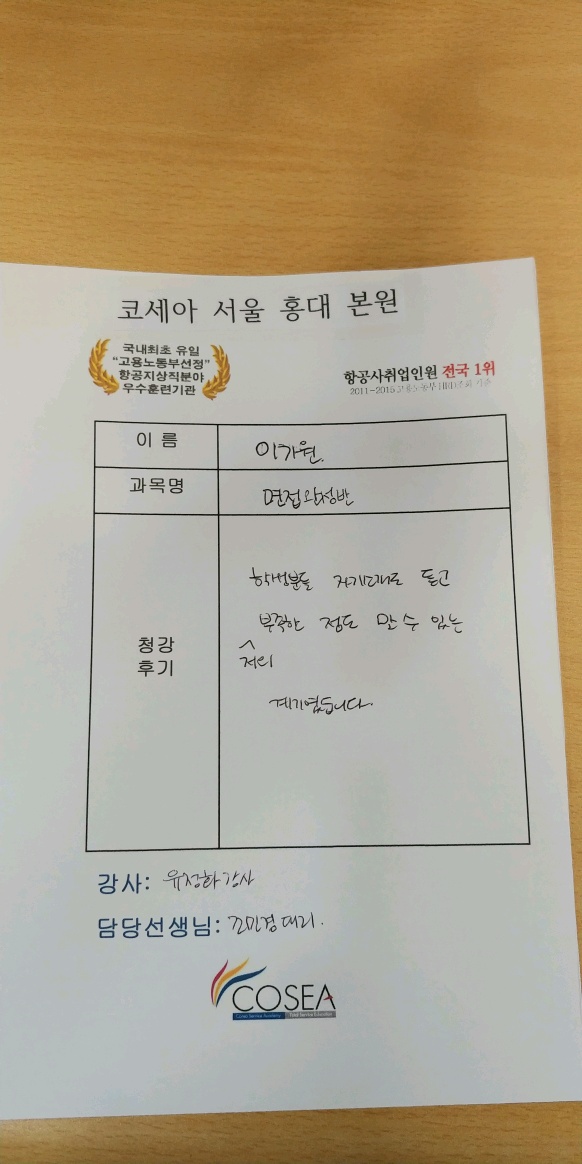 코세아 서울 홍대 본원
국내최초 유일
"고용노동부선정"
항공지상직분야
우수훈련기관
항공사취업인원 전국 1위
2011-2015 고용노동부 HRD조회 기준
이 름
이가원.
과목명
면접완성반
청강
후기
학생분들 자기소개로 듣고
부족한 점도 알 수 있는
저의
계기였습니다.
강사: 유정화강사
담당선생님: 조민경 대리.
COSEA
Korea Service Academy Total Service Education